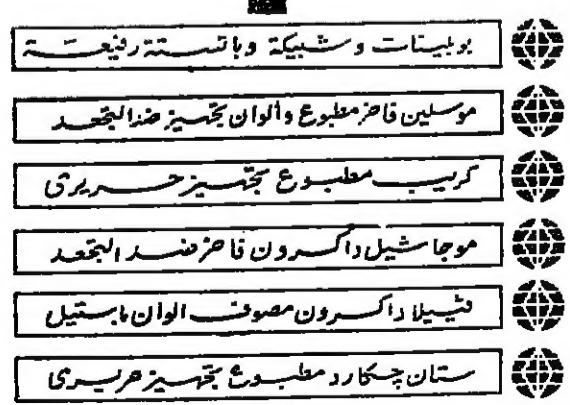 بوبلينات وشبيكة وباتستة رفيعة
موسلين فاخر مطبوع وألوان بتجهيز ضد التجعد
كريب مطبوع بتجهيز حريرى
موجاشيل داكرون فاخر ضد التجعد
فتييلا داكرون مصوف ألوان باستيل
ستان چكارد مطبوع بتجهيز حريرى